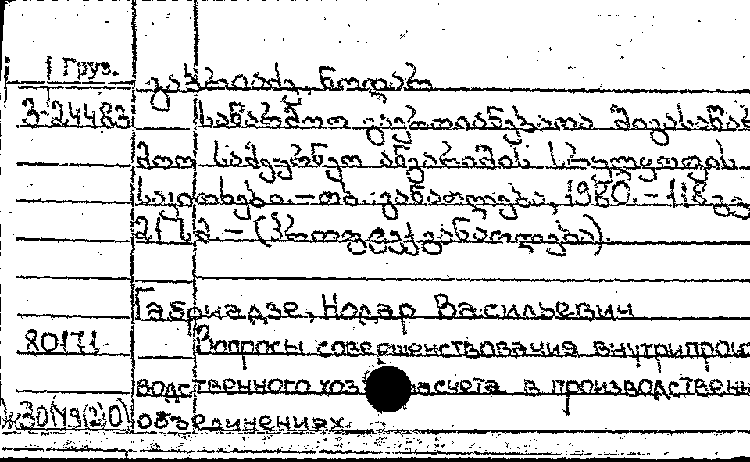 Груз.
გაბრიაძე, ნოდარ
3-24483 საწარმოო გაერთიანებათა შიგასაწარ
მოო სამეურნეო ანგარიშის სრულყოფის
საკითხები. – თბ.: განათლება, 1980. – 118 გვ
21 სმ – (პროფტექგანათლება).
Габриадзе, Нодар Васильевич
80171 Вопросы совершенствования внутрипроиз
водственного хоз расчета в производственн
объединениях.